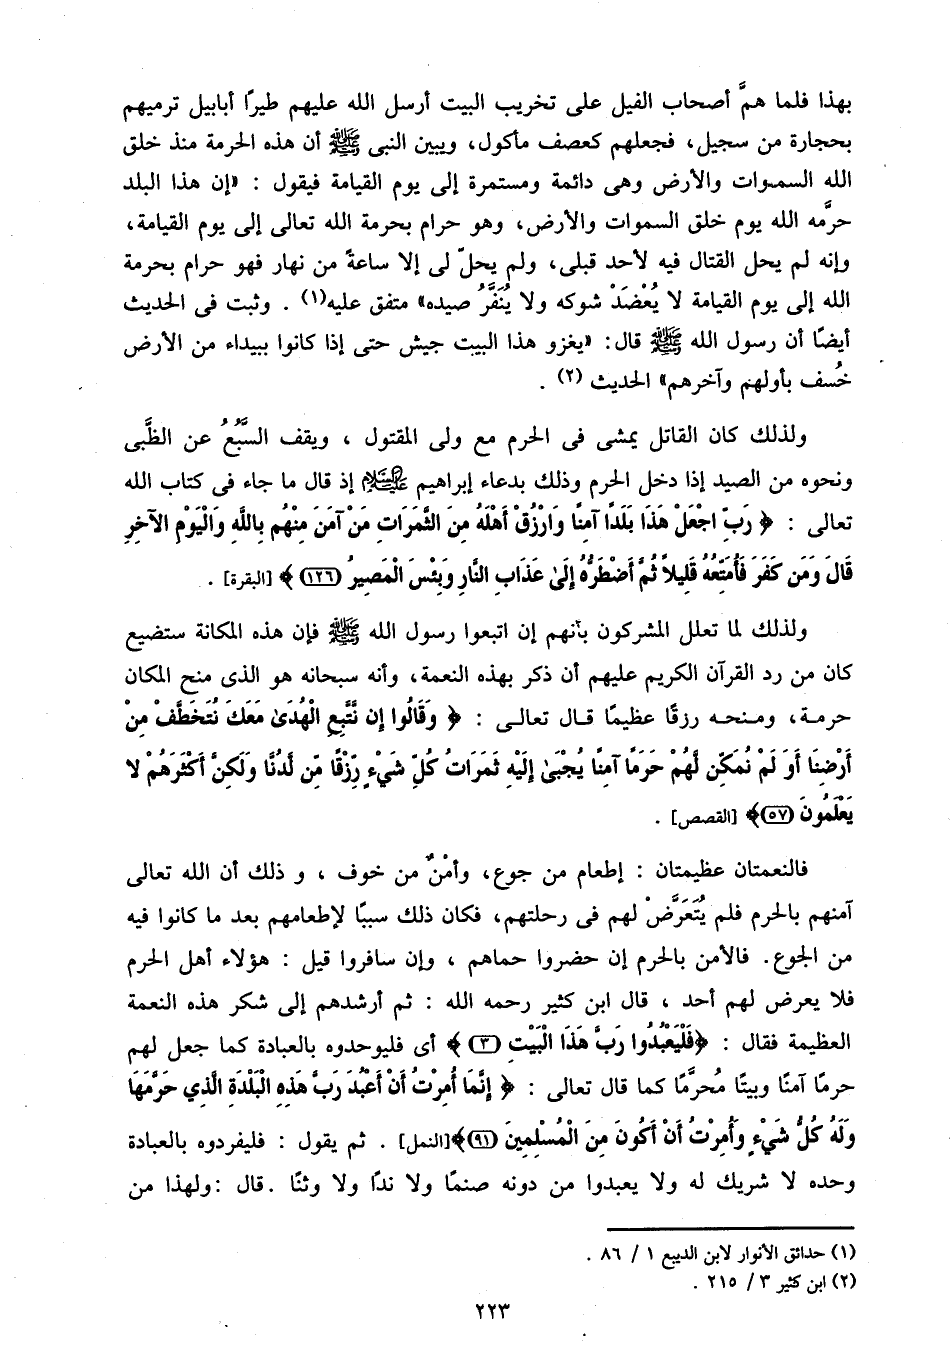 بهذا فلما همَّ أصحاب الفيل على تخريب البيت أرسل الله عليهم طيرًا أبابيل ترميهم
بحجارة من سجيل، فجعلهم كعصف مأكول، ويبين النبى ﷺ أن هذه الحرمة منذ خلق
الله السموات والأرض وهى دائمة ومستمرة إلى يوم القيامة فيقول : «إن هذا البلد
حرَّمه الله يوم خلق السموات والأرض، وهو حرام بحرمة الله تعالى إلى يوم القيامة،
وإنه لم يحل القتال فيه لأحد قبلى، ولم يحلّ لى إلا ساعةً من نهار فهو حرام بحرمة
الله إلى يوم القيامة لا يُعْضَدْ شوكه ولا يُنَفَّرُ صيده» متفق عليه(١) . وثبت فى الحديث
أيضًا أن رسول الله ﷺ قال: «يغزو هذا البيت جيش حتى إذا كانوا ببيداء من الأرض
خُسف بأولهم وآخرهم» الحديث (٢) .
ولذلك كان القاتل يمشى فى الحرم مع ولى المقتول ، ويقف السَّبُعُ عن الظَّبى
ونحوه من الصيد إذا دخل الحرم وذلك بدعاء إبراهيم عليه السلام إذ قال ما جاء فى كتاب الله
تعالى : ﴿ رَبِّ اجْعَلْ هَذَا بَلَدًا آمِنًا وَارْزُقْ أَهْلَهُ مِنَ الثَّمَرَاتِ مَنْ آمَنَ مِنْهُم بِاللَّهِ وَالْيَوْمِ الآخِرِ
قَالَ وَمَن كَفَرَ فَأُمَتِّعُهُ قَلِيلاً ثُمَّ أَضْطَرُّهُ إِلَىٰ عَذَابِ النَّارِ وَبِئْسَ الْمَصِيرُ (١٢٦) ﴾ [البقرة] .
ولذلك لما تعلل المشركون بأنهم إن اتبعوا رسول الله ﷺ فإن هذه المكانة ستضيع
كان من رد القرآن الكريم عليهم أن ذكر بهذه النعمة، وأنه سبحانه هو الذى منح المكان
حرمة، ومنحه رزقًا عظيمًا قال تعالى : ﴿ وَقَالُوا إِن نَّتَّبِعِ الْهُدَىٰ مَعَكَ نُتَخَطَّفْ مِنْ
أَرْضِنَا أَوَ لَمْ نُمَكِّن لَّهُمْ حَرَمًا آمِنًا يُجْبَىٰ إِلَيْهِ ثَمَرَاتُ كُلِّ شَيْءٍ رِّزْقًا مِّن لَّدُنَّا وَلَكِنَّ أَكْثَرَهُمْ لا
يَعْلَمُونَ (٥٧)﴾ [القصص] .
فالنعمتان عظيمتان : إطعام من جوع، وأمْنٌ من خوف ، و ذلك أن الله تعالى
آمنهم بالحرم فلم يُتَعَرَّضْ لهم فى رحلتهم، فكان ذلك سببًا لإطعامهم بعد ما كانوا فيه
من الجوع. فالأمن بالحرم إن حضروا حماهم ، وإن سافروا قيل : هؤلاء أهل الحرم
فلا يعرض لهم أحد ، قال ابن كثير رحمه الله : ثم أرشدهم إلى شكر هذه النعمة
العظيمة فقال : ﴿فَلْيَعْبُدُوا رَبَّ هَذَا الْبَيْتِ (٣) ﴾ أى فليوحدوه بالعبادة كما جعل لهم
حرمًا آمنًا وبيتًا مُحرَّمًا كما قال تعالى : ﴿ إِنَّمَا أُمِرْتُ أَنْ أَعْبُدَ رَبَّ هَذِهِ الْبَلْدَةِ الَّذِي حَرَّمَهَا
وَلَهُ كُلُّ شَيْءٍ وَأُمِرْتُ أَنْ أَكُونَ مِنَ الْمُسْلِمِينَ (٩١)﴾[النمل] . ثم يقول : فليفردوه بالعبادة
وحده لا شريك له ولا يعبدوا من دونه صنمًا ولا ندًا ولا وثنًا .قال :ولهذا من
(١) حدائق الأنوار لابن الديبع ١ / ٨٦ .
(٢) ابن كثير ٣ / ٢١٥ .
٢٢٣